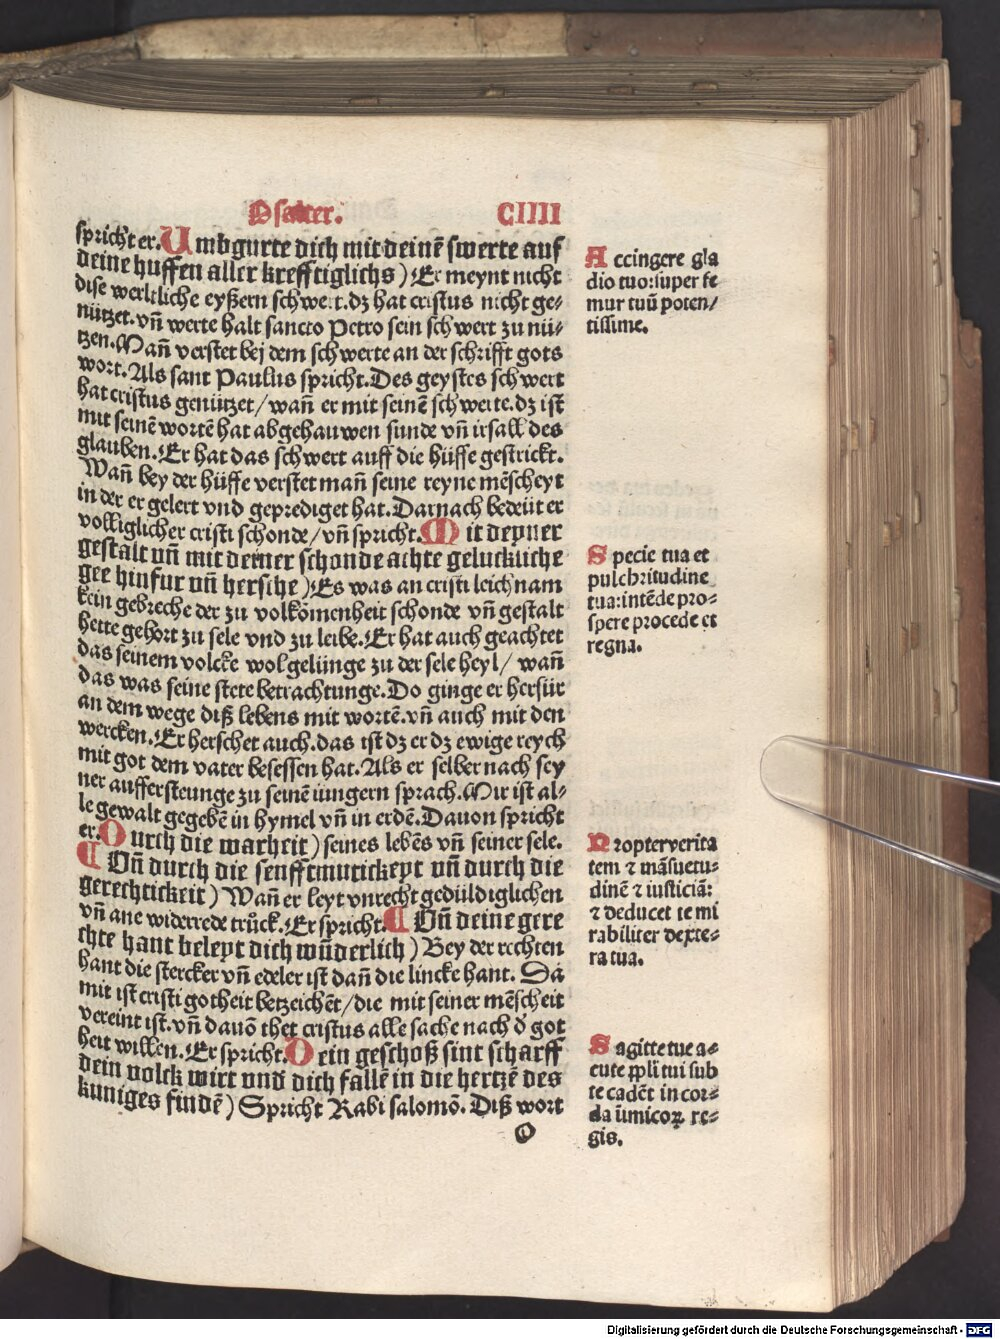 Psalter.
CIIII
spricht er. Umbgurte dich mit deinē swerte auf
deine huffen aller krefftiglichs) Er meynt nicht
dise werltliche eyßern schwert. dz hat cristus nicht ge-
nützet. vn̄ werte halt sancto Petro sein schwert zu nü-
tzen. Wan̄ verstet bej dem schwerte an der schrifft gots
wort. Als sant Paulus spricht. Des geystes schwert
hat cristus genützet/ wan̄ er mit seinē schwerte. dz ist
mit seinē wortē hat abgehauwen sunde vn̄ irsall des
glauben. Er hat das schwert auff die hüffe gestrickt.
Wan̄ bey der hüffe verstet man̄ seine reyne mēscheyt
in der er gelert vnd geprediget hat. Darnach bedeüt er
volliglicher cristi schonde/ vn̄ spricht. Mit deyner
gestalt vn̄ mit deiner schonde achte geluckliche
gee hinfur vn̄ hersche) Es was an cristi leichnam
kein gebreche der zu volkōmenheit schonde vn̄ gestalt
hette gehort zu sele vnd zu leibe. Er hat auch geachtet
das seinem volcke wol gelünge zu der sele heyl/ wan̄
das was seine stete betrachtunge. Do ginge er herfür
an dem wege diß lebens mit wortē. vn̄ auch mit den
wercken. Er herschet auch. das ist dz er dz ewige reych
mit got dem vater besessen hat. Als er selber nach sey
ner auffersteunge zu seinē iüngern sprach. Mir ist al-
le gewalt gegebē in hymel vn̄ in erdē. Dauon spricht
er. Durch die warheit) seines lebēs vn̄ seiner sele.
¶ Vn̄ durch die senfftmutickeyt vn̄ durch die
gerechtickeit) Wan̄ er leyt vnrecht gedüldiglichen
vn̄ ane widerrede trůck. Er spricht. ¶ Vn̄ deine gere
chte hant beleyt dich wūderlich) Bey der rechten
hant die stercker vn̄ edeler ist dan̄ die lincke hant. Da
mit ist cristi gotheit betzeichēt/ die mit seiner mēscheit
vereint ist. vn̄ dauō thet cristus alle sache nach d̓ got
heit willen. Er spricht. Dein geschoß sint scharff
dein volck wirt vnd̓ dich fallē in die hertzē des
kuniges findē) Spricht Rabi salomō. Diß wort
O
Accingere gla
dio tuo: super fe
mur tuū poten/
tissime.
Specie tua et
pulchritudine
tua: intēde pro-
spere procede et
regna.
Propter verita
tem ⁊ māsuetu-
dinē ⁊ iusticiā:
⁊ deducet te mi
rabiliter dexte-
ra tua.
Sagitte tue a-
cute ꝓpli tui sub
te cadēt in cor-
da inimicoꝝ re-
gis.
Digitalisierung gefördert durch die Deutsche Forschungsgemeinschaft - DFG